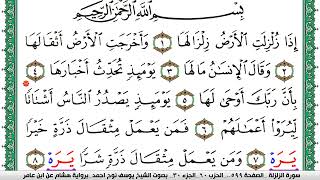 بِسْمِ اللَّهِ الرَّحْمَٰنِ الرَّحِيمِ
إِذَا زُلْزِلَتِ الْأَرْضُ زِلْزَالَهَا ١ وَأَخْرَجَتِ الْأَرْضُ أَثْقَالَهَا
٢ وَقَالَ الْإِنسَٰنُ مَا لَهَا ٣ يَوْمَئِذٍ تُحَدِّثُ أَخْبَارَهَا ٤
بِأَنَّ رَبَّكَ أَوْحَىٰ لَهَا ٥ يَوْمَئِذٍ يَصْدُرُ النَّاسُ أَشْتَاتًا
لِّيُرَوْا أَعْمَٰلَهُمْ ٦ فَمَن يَعْمَلْ مِثْقَالَ ذَرَّةٍ خَيْرًا
يَرَهْ ٧ وَمَن يَعْمَلْ مِثْقَالَ ذَرَّةٍ شَرًّا يَرَهْ ٨
سورة الزلزلة . الصفحة ٥٩٩ . الحزب ٦٠ . الجزء ٣٠ . بصوت الشيخ يوسف نوح احمد . برواية هشام عن ابن عامر